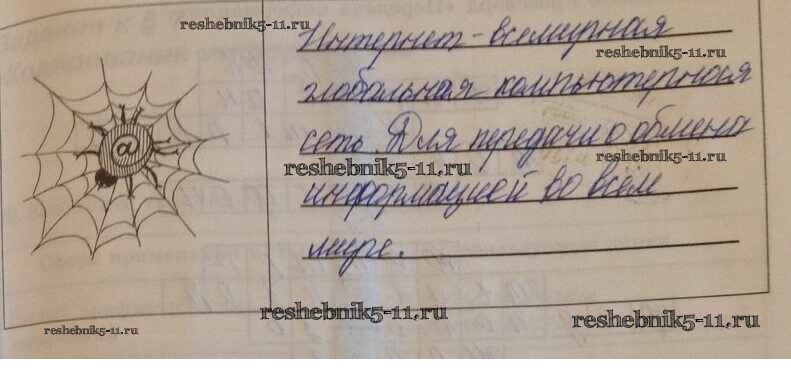 reshebnik5-11.ru
Интернет - всемирная
reshebnik5-11.ru
глобальная компьютерная
сеть. Для передачи о обмена
@
reshebnik5-11.ru
reshebnik5-11.ru
reshebnik5-11.ru
информацией во всем
мире.
reshebnik5-11.ru
reshebnik5-11.ru
reshebnik5-11.ru